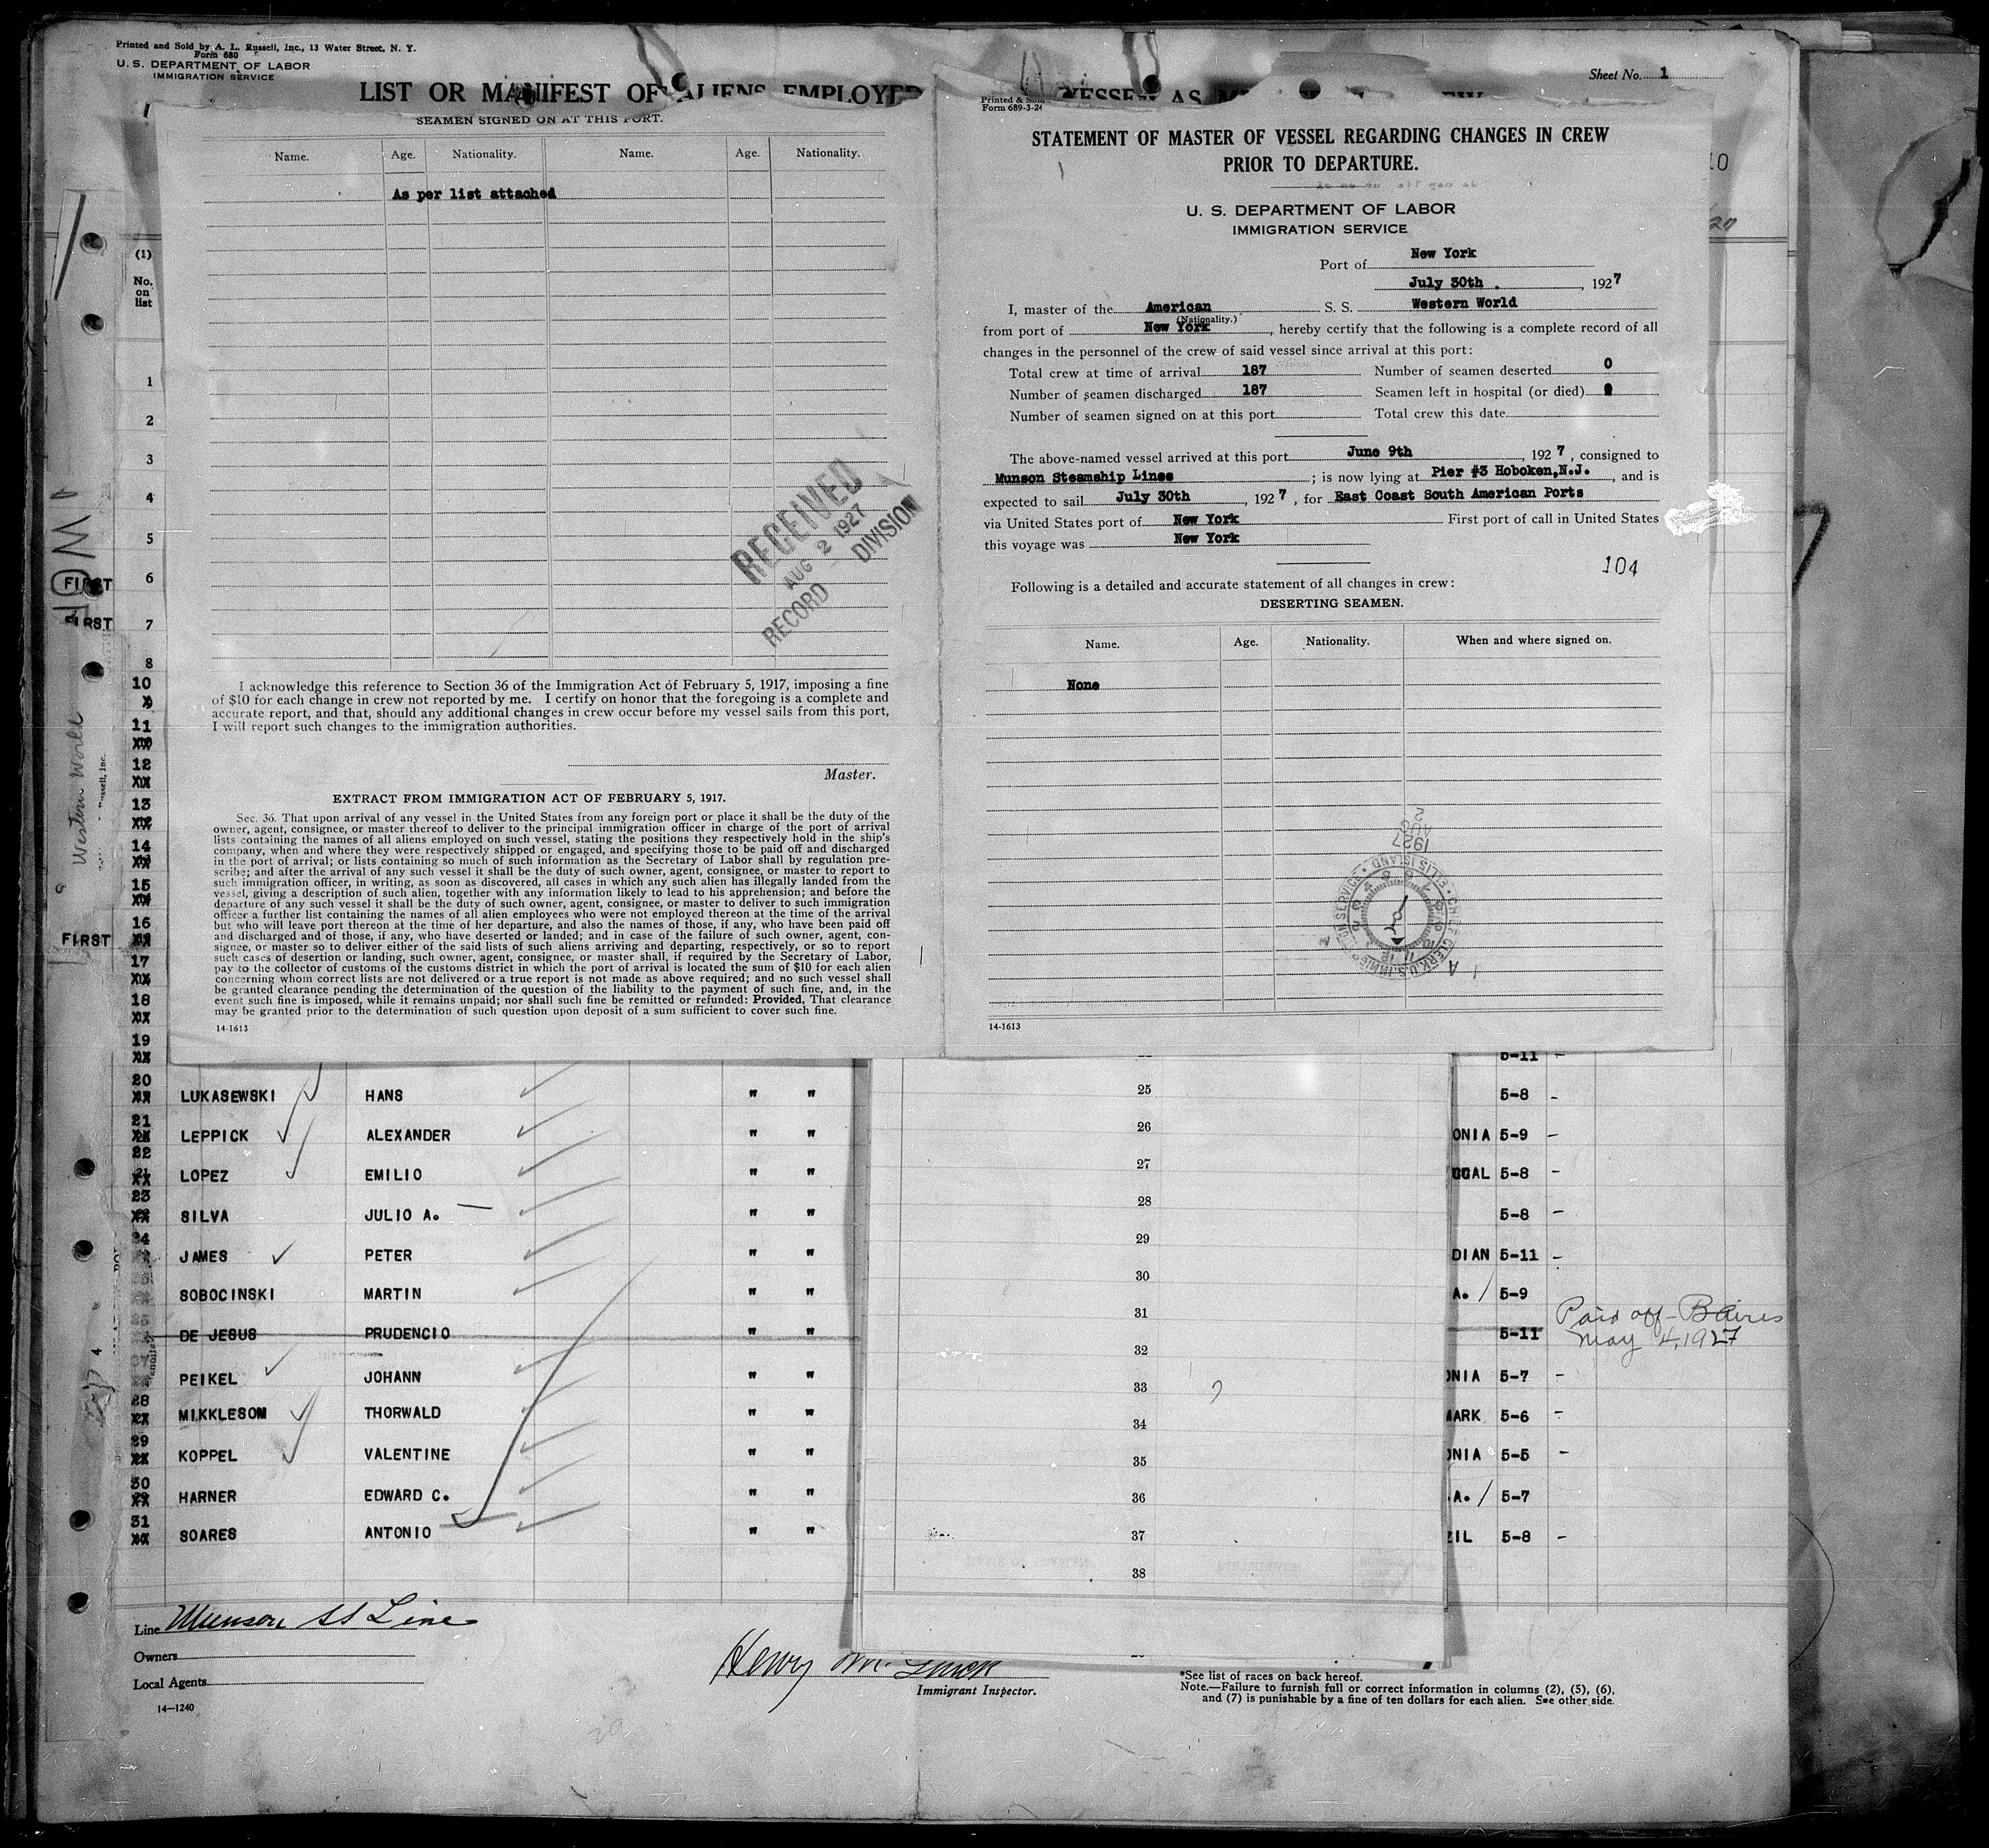 Printed and Sold by A. L. Russell, Inc., 13 Water Street, N. Y.
Form 680
U. S. DEPARTMENT OF LABOR
IMMIGRATION SERVICE
Sheet No. 1
LIST OR MANIFEST OF ALIENS EMPLOYED
VESSEL AS
SEAMEN SIGNED ON AT THIS PORT.
Name. Age. Nationality. Name. Age. Nationality.
As per list attached
RECEIVED
AUG 2 1927
RECORD DIVISION
I acknowledge this reference to Section 36 of the Immigration Act of February 5, 1917, imposing a fine
of $10 for each change in crew not reported by me. I certify on honor that the foregoing is a complete and
accurate report, and that, should any additional changes in crew occur before my vessel sails from this port,
I will report such changes to the immigration authorities.
Master.
EXTRACT FROM IMMIGRATION ACT OF FEBRUARY 5, 1917.
Sec. 36. That upon arrival of any vessel in the United States from any foreign port or place it shall be the duty of the
owner, agent, consignee, or master thereof to deliver to the principal immigration officer in charge of the port of arrival
lists containing the names of all aliens employed on such vessel, stating the positions they respectively hold in the ship's
company, when and where they were respectively shipped or engaged, and specifying those to be paid off and discharged
in the port of arrival; or lists containing so much of such information as the Secretary of Labor shall by regulation pre-
scribe; and after the arrival of any such vessel it shall be the duty of such owner, agent, consignee, or master to report to
such immigration officer, in writing, as soon as discovered, all cases in which any such alien has illegally landed from the
vessel, giving a description of such alien, together with any information likely to lead to his apprehension; and before the
departure of any such vessel it shall be the duty of such owner, agent, consignee, or master to deliver to such immigration
officer a further list containing the names of all alien employees who were not employed thereon at the time of the arrival
but who will leave port thereon at the time of her departure, and also the names of those, if any, who have been paid off
and discharged and of those, if any, who have deserted or landed; and in case of the failure of such owner, agent, con-
signee, or master so to deliver either of the said lists of such aliens arriving and departing, respectively, or so to report
such cases of desertion or landing, such owner, agent, consignee, or master shall, if required by the Secretary of Labor,
pay to the collector of customs of the customs district in which the port of arrival is located the sum of $10 for each alien
concerning whom correct lists are not delivered or a true report is not made as above required; and no such vessel shall
be granted clearance pending the determination of the question of the liability to the payment of such fine, and, in the
event such fine is imposed, while it remains unpaid; nor shall such fine be remitted or refunded: Provided, That clearance
may be granted prior to the determination of such question upon deposit of a sum sufficient to cover such fine.
14-1613
Printed & Sold
Form 689-3-24
STATEMENT OF MASTER OF VESSEL REGARDING CHANGES IN CREW
PRIOR TO DEPARTURE.
U. S. DEPARTMENT OF LABOR
IMMIGRATION SERVICE
Port of New York
July 30th . , 1927
I, master of the American S. S. Western World
(Nationality.)
from port of New York, hereby certify that the following is a complete record of all
changes in the personnel of the crew of said vessel since arrival at this port:
Total crew at time of arrival 187 Number of seamen deserted 0
Number of seamen discharged 187 Seamen left in hospital (or died) 0
Number of seamen signed on at this port Total crew this date
The above-named vessel arrived at this port June 9th, 1927, consigned to
Munson Steamship Lines; is now lying at Pier #3 Hoboken,N.J., and is
expected to sail July 30th, 1927, for East Coast South American Ports
via United States port of New York First port of call in United States
this voyage was New York
104
Following is a detailed and accurate statement of all changes in crew:
DESERTING SEAMEN.
Name. Age. Nationality. When and where signed on.
None
1927
AUG
2
CHIEF CLERK, U.S. IMMIGRATION SERVICE · ELLIS ISLAND
14-1613
10
(1)
No.
on
list
1
2
3
4
5
FIRST 6
FIRST 7
8
10
11
12
13
14
15
16
FIRST
17
18
19
5-11 -
Western World
20 LUKASEWSKI HANS " " 25 5-8 -
21 LEPPICK ALEXANDER " " 26 ONIA 5-9 -
22 LOPEZ EMILIO " " 27 UGAL 5-8 -
23 SILVA JULIO A. " " 28 5-8 -
24 JAMES PETER " " 29 DIAN 5-11 -
SOBOCINSKI MARTIN " " 30 A. 5-9
DE JESUS PRUDENCIO " " 31 5-11 Paid off - BAires
May 4, 1927
32
PEIKEL JOHANN " " 33 ONIA 5-7 -
28 MIKKLESOM THORWALD " " 34 MARK 5-6 -
29 KOPPEL VALENTINE " " 35 ONIA 5-5 -
30 HARNER EDWARD C. " " 36 .A. 5-7
31 SOARES ANTONIO " " 37 ZIL 5-8 -
38
Line Munson SS Line
Owners
Local Agents
14-1240
Henry
Immigrant Inspector.
*See list of races on back hereof.
Note.—Failure to furnish full or correct information in columns (2), (5), (6),
and (7) is punishable by a fine of ten dollars for each alien. See other side.